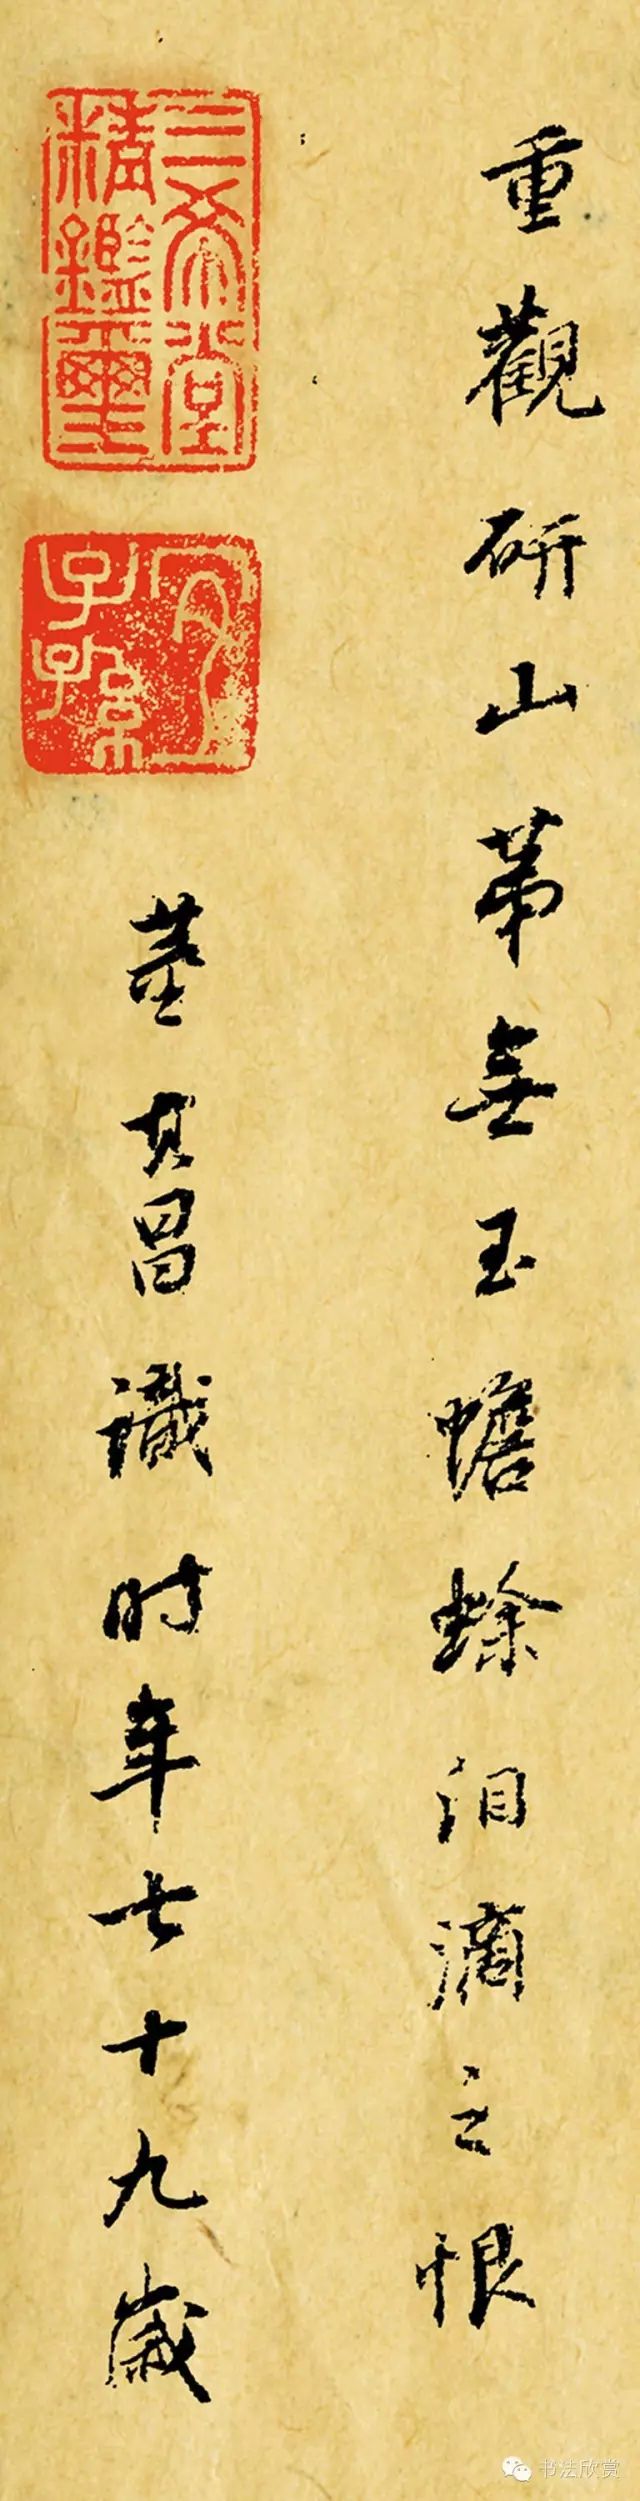 重觀研山苐無玉蟾蜍泪滴之恨
董其昌識時年七十九歲
三希堂精鑑璽
宜子孫
书法欣赏